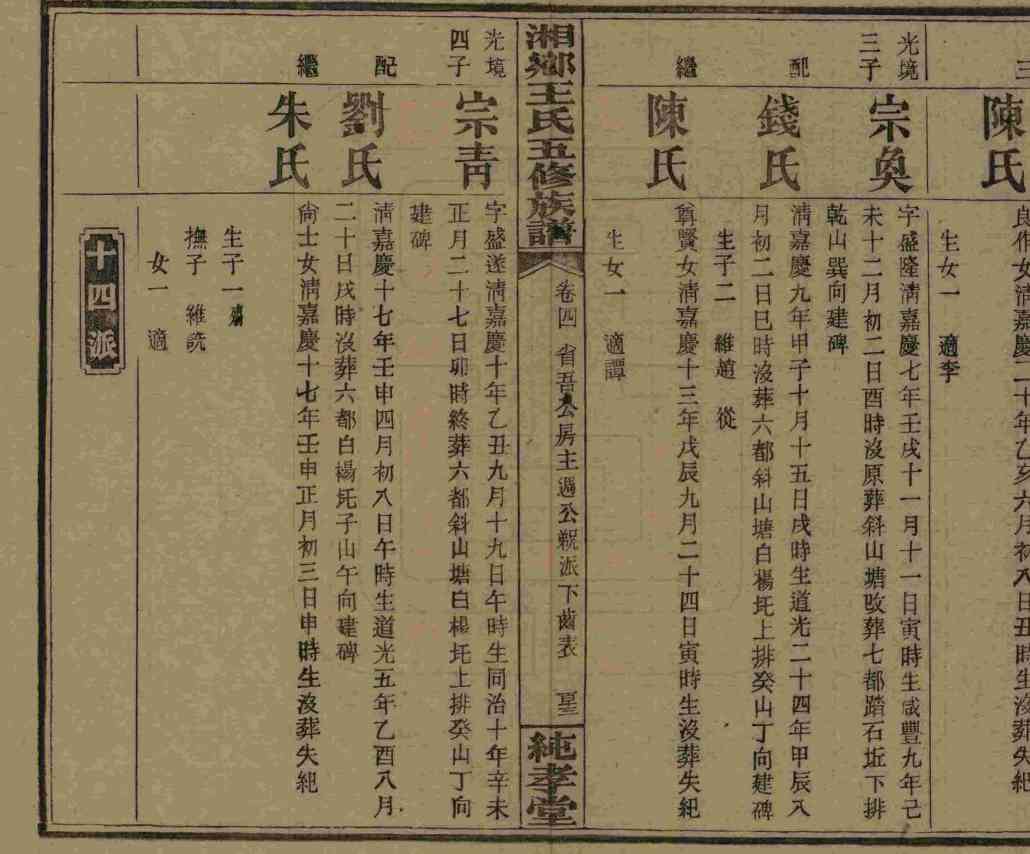 三
陳氏
生女一 適李
光境三子
宗奐
字盛隆清嘉慶七年壬戌十一月十一日寅時生咸豐九年己
未十二月初二日酉時沒原葬斜山塘改葬七都踏石坵下排
乾山巽向建碑
配
錢氏
清嘉慶九年甲子十月十五日戌時生道光二十四年甲辰八
月初二日巳時沒葬六都斜山塘白楊圫上排癸山丁向建碑
生子二 維趙 從
繼
陳氏
尊賢女清嘉慶十三年戊辰九月二十四日寅時生沒葬失紀
生女一 適譚
湘鄉王氏五修族譜
卷四 省吾公房主遇公親派下齒表
純孝堂
光境四子
宗青
字盛遂清嘉慶十年乙丑九月十九日午時生同治十年辛未
正月二十七日卯時終葬六都斜山塘白楊圫上排癸山丁向
建碑
配
劉氏
清嘉慶十七年壬申四月初八日午時生道光五年乙酉八月
二十日戌時沒葬六都白楊圫子山午向建碑
繼
朱氏
尙士女清嘉慶十七年壬申正月初三日申時生沒葬失紀
生子一
撫子 維詵
女一 適
十四派